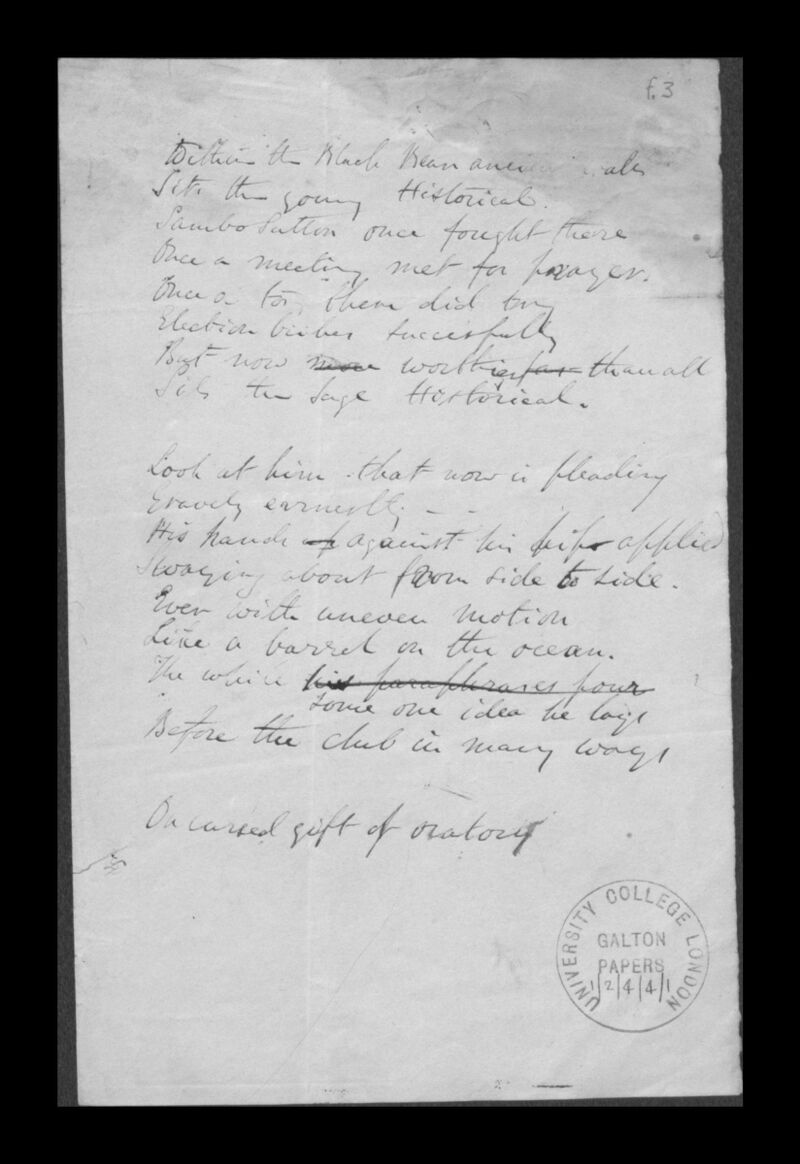 f.3
Within the Black Bear
Sits the young Historical.
Sambo Sutton once fought there
Once a meeting met for prayer.
Once a there did try
Election bribes succesfully
But now more worthy far than all
Sits the sage Historical.
Look at him - that now is pleading
Gravely earnestly - -
His hands against his hips applied
Swaying about from side to side.
Ever with uneven motion
Like a barrel on the ocean.
The while his paraphrases pour
Some one idea he lays
Before the club in many ways
cursed gift of oratory
UNIVERSITY COLLEGE LONDON
GALTON
PAPERS
1/2/4/4/1